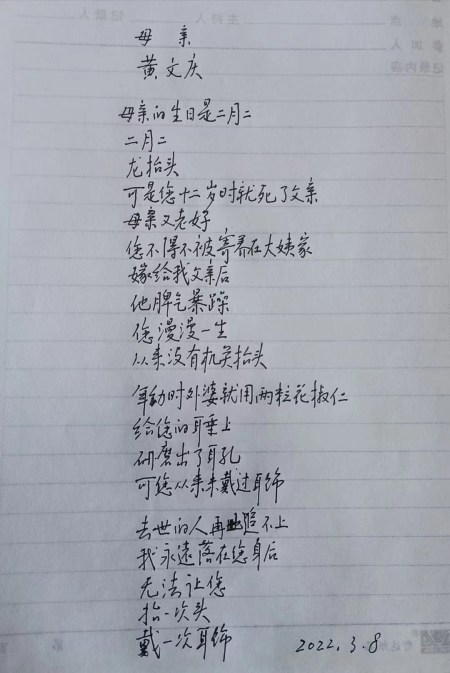 母亲
黄文庆
母亲的生日是二月二
二月二
龙抬头
可是您十二岁时就死了父亲
母亲又老好
您不得不被寄养在大姨家
嫁给我父亲后
他脾气暴躁
您漫漫一生
从来没有机会抬头
年幼时外婆就用两粒花椒仁
给您的耳垂上
研磨出了耳孔
可您从来未戴过耳饰
去世的人再也追不上
我永远落在您身后
无法让您
抬一次头
戴一次耳饰
2022.3.8